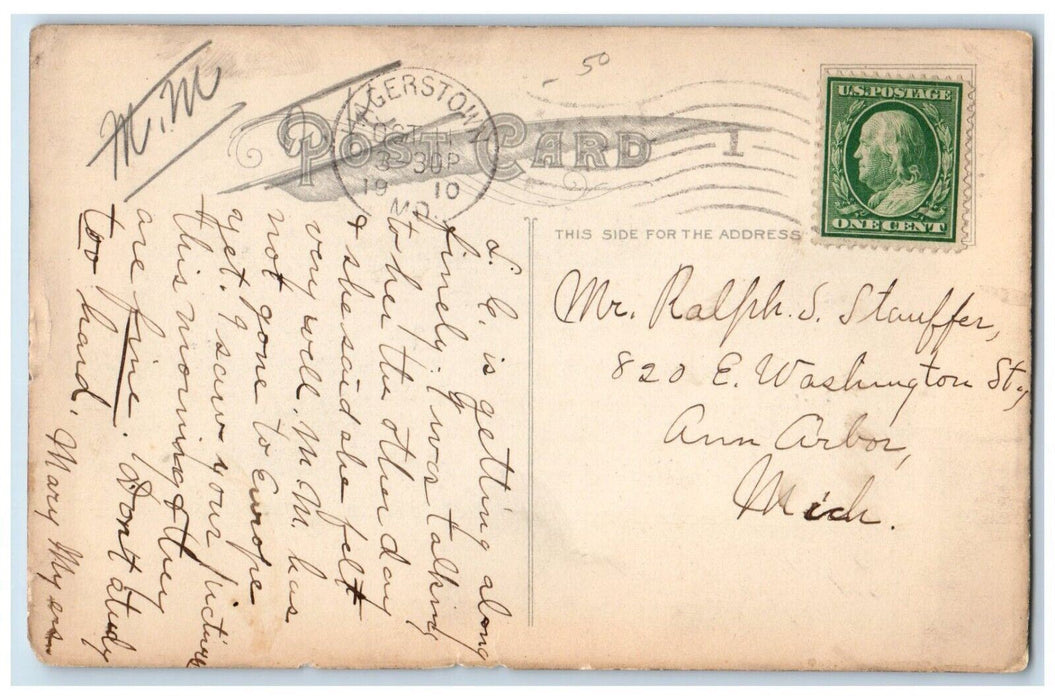 M. M
- 50
POST CARD
HAGERSTOWN
OCT
3 30P
19 10
MD.
1
U.S. POSTAGE
ONE CENT
THIS SIDE FOR THE ADDRESS
Mr. Ralph. S. Stauffer,
820 E. Washington St.,
Ann Arbor,
Mich.
L. C. is getting along
finely. I was talking
to her the other day
& she said she felt
very well. M. M. has
not gone to Europe
yet. I saw your picture
this morning & they
are fine. Don't study
too hard.
Mary Myers